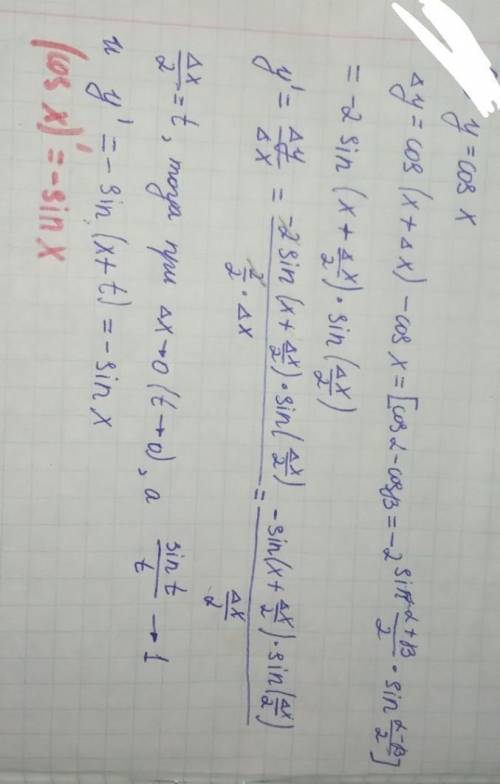 y = cos x
Δy = cos (x + Δx) - cos x = [cos α - cos β = -2 sin (α+β)/2 · sin (α-β)/2]
= -2 sin (x + Δx/2) · sin (Δx/2)
y' = Δy/Δx = (-2 sin (x + Δx/2) · sin (Δx/2))/(2/2 · Δx) = (-sin (x + Δx/2) · sin (Δx/2))/(Δx/2)
Δx/2 = t, тогда при Δx → 0 (t → 0), а sin t/t → 1
и y' = - sin (x + t) = - sin x
(cos x)' = - sin x